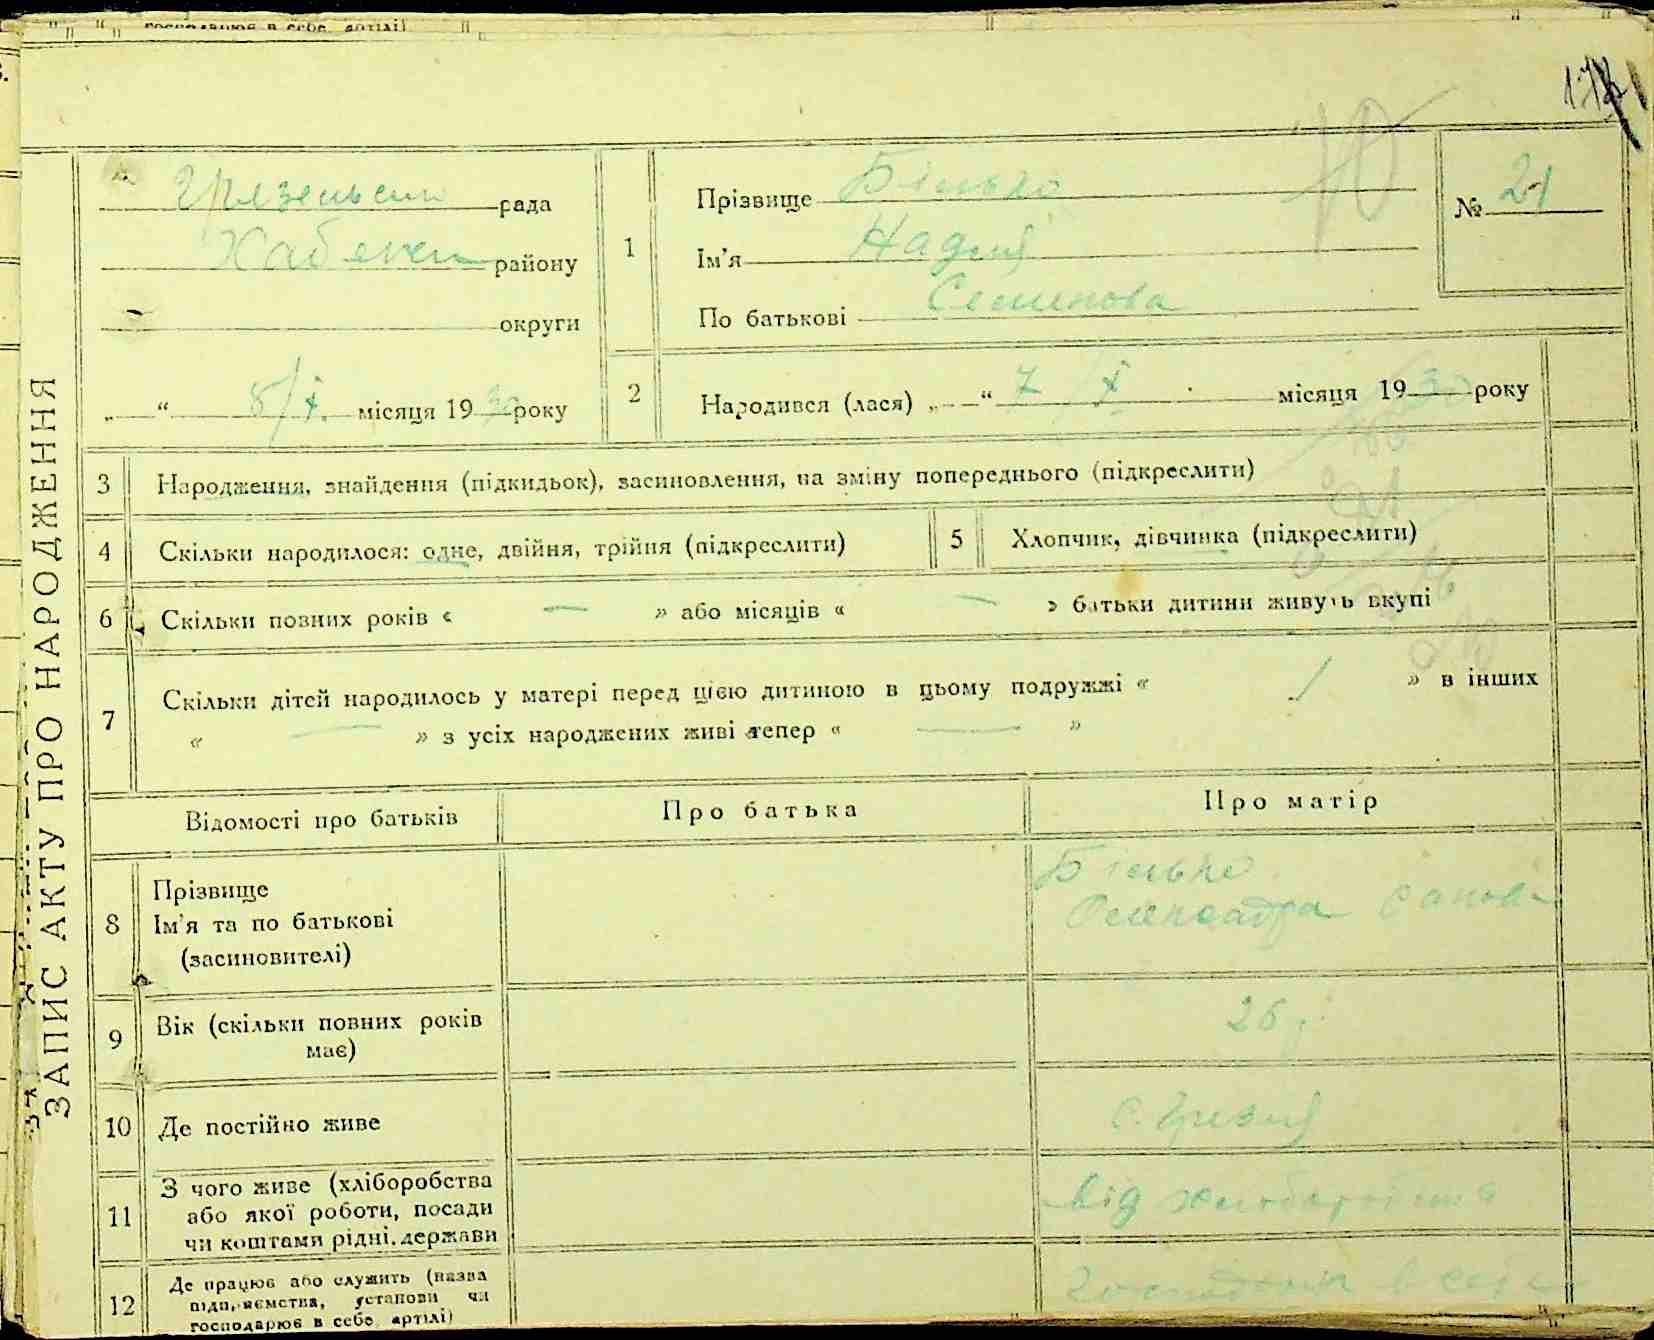 господарює в себе, артілі)
рада
району
округи
„ “ 8/X. місяця 1930 року
1
Прізвище Білько
Ім’я Надия
По батькові Семенова
№ 21
2
Народився (лася) „ “ 7 X місяця 1930 року
ЗАПИС АКТУ ПРО НАРОДЖЕННЯ
3 Народження, знайдення (підкидьок), засиновлення, на зміну попереднього (підкреслити)
4 Скільки народилося: одне, двійня, трійня (підкреслити)
5 Хлопчик, дівчинка (підкреслити)
6 Скільки повних років « — » або місяців « — » батьки дитини живуть вкупі
7 Скільки дітей народилось у матері перед цією дитиною в цьому подружжі « / » в інших
« — » з усіх народжених живі тепер « — »
Відомості про батьків Про батька Про матір
8 Прізвище
Ім’я та по батькові
(засиновителі)
Білько
Олександра
9 Вік (скільки повних років
має)
26 р.
10 Де постійно живе
11 З чого живе (хліборобства
або якої роботи, посади
чи коштами рідні, держави
від
12 Де працює або служить (назва
підприємства, установи чи
господарює в себе, артілі)
в себе